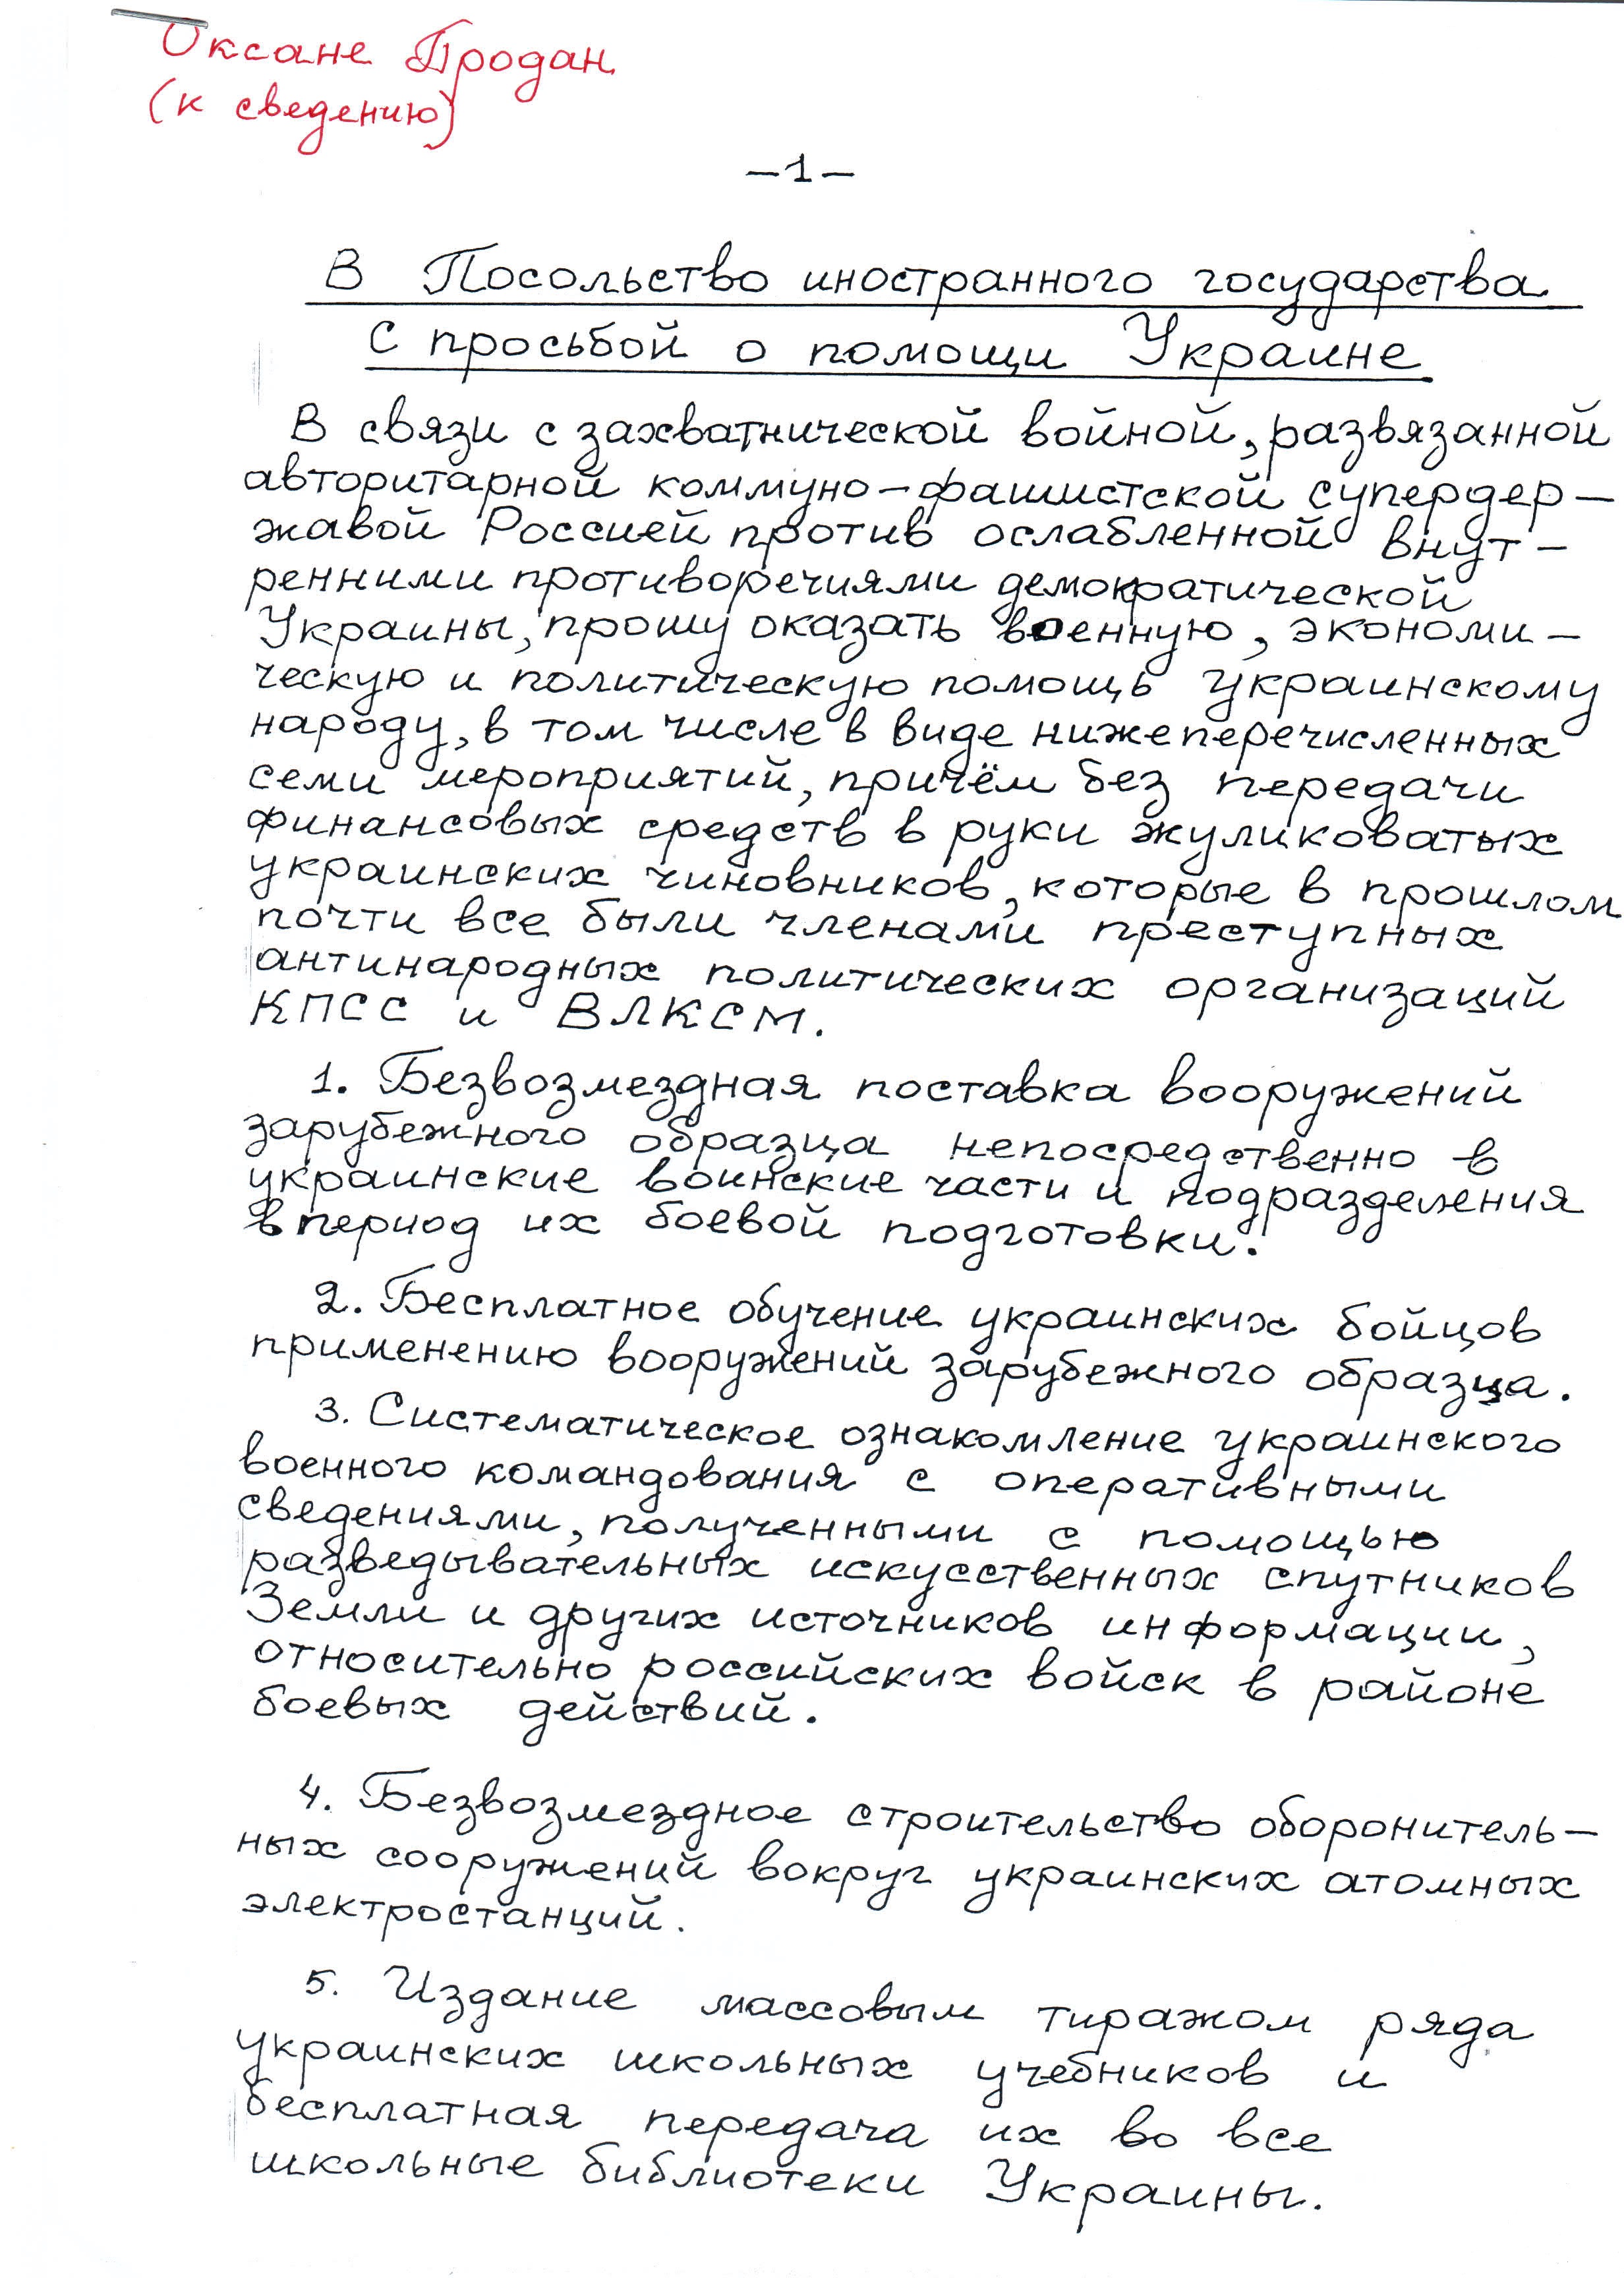 Оксане Продан
(к сведению)
—1—
В Посольство иностранного государства
с просьбой о помощи Украине
В связи с захватнической войной, развязанной
авторитарной коммуно-фашистской супердер-
жавой Россией против ослабленной внут-
ренними противоречиями демократической
Украины, прошу оказать военную, экономи-
ческую и политическую помощь украинскому
народу, в том числе в виде нижеперечисленных
семи мероприятий, причём без передачи
финансовых средств в руки жуликоватых
украинских чиновников, которые в прошлом
почти все были членами преступных
антинародных политических организаций
КПСС и ВЛКСМ.
1. Безвозмездная поставка вооружений
зарубежного образца непосредственно в
украинские воинские части и подразделения
в период их боевой подготовки.
2. Бесплатное обучение украинских бойцов
применению вооружений зарубежного образца.
3. Систематическое ознакомление украинского
военного командования с оперативными
сведениями, полученными с помощью
разведывательных искусственных спутников
Земли и других источников информации,
относительно российских войск в районе
боевых действий.
4. Безвозмездное строительство оборонитель-
ных сооружений вокруг украинских атомных
электростанций.
5. Издание массовым тиражом ряда
украинских школьных учебников и
бесплатная передача их во все
школьные библиотеки Украины.